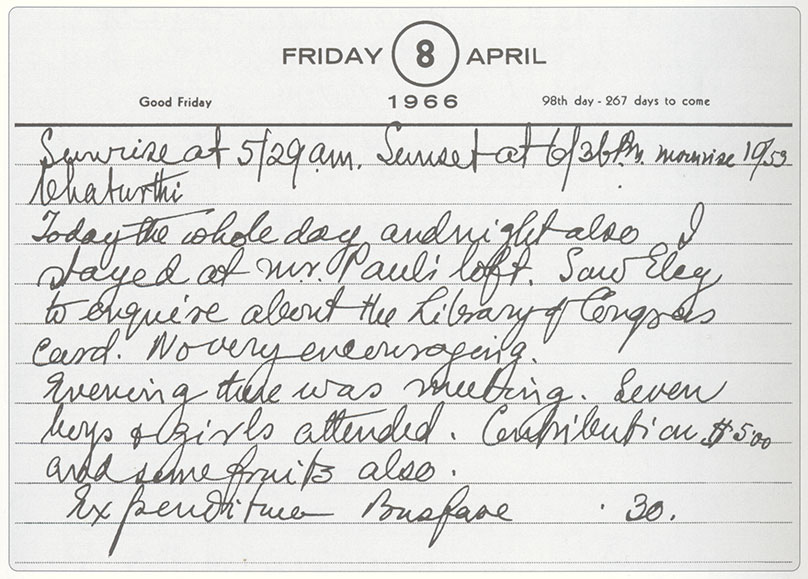 FRIDAY 8 APRIL
Good Friday 1966 98th day - 267 days to come
Sunrise at 5/29 a.m. Sunset at 6/36 P.M. moonrise 10/59
Chaturthi
Today the whole day and night also I
stayed at mr. Paul's loft. Saw
to enquire about the Library of Congress
card. No very encouraging.
Evening there was meeting. Seven
boys & girls attended. Contribution $5.00
and some fruits also.
Expenditure Busfare .30.